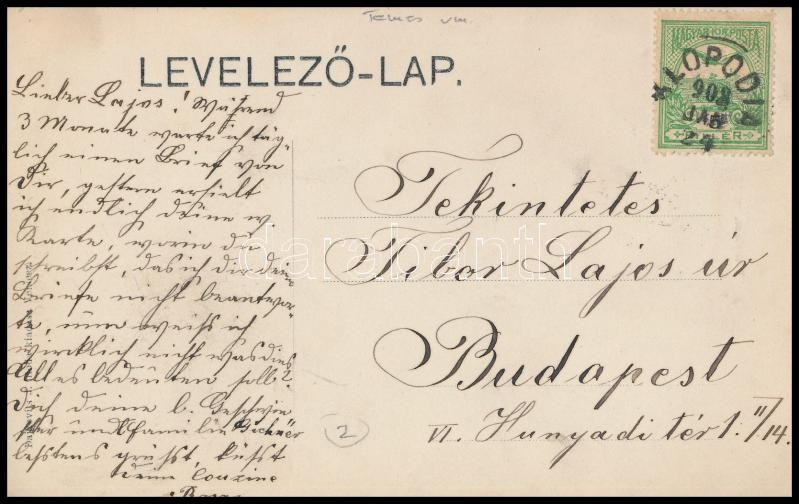 Temes vm.
LEVELEZŐ-LAP.
MAGYAR KIR. POSTA
LOPODIA
908
JAN
24
Lieber Lajos! Während
3 Monate warte ich täg-
lich einen Brief von
Dir, gestern erhielt
ich endlich deine w
Karte, worin du
schreibst, das ich dir deine
Briefe nicht beantwor-
te, nun weiss ich
wircklich nicht was dies
Alles bedeuten soll?
Dich deine l. Geschwis-
ter und Familie
bestens grüsst, küsst
deine Cousine
Tekintetes
Tibor Lajos úr
Budapest
VI. Hunyadi tér 1. II/14.
2
darabanth